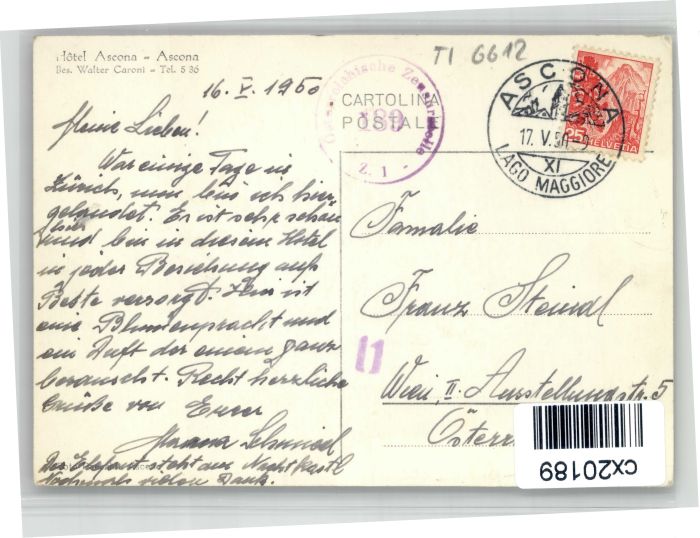 Hôtel Ascona - Ascona
Bes. Walter Caroni - Tel. 5 36
TI 6612
16. V. 1950
CARTOLINA
POSTALE
Österreichische Zensurstelle
189
Z. 1
ASCONA
17. V. 50
XI
LAGO MAGGIORE
25
HELVETIA
Meine Lieben!
War einige Tage in
Zürich, nun bin ich hier
gelandet. Er ist sehr schön
hier
und bin in diesem Hotel
in jeder Beziehung aufs
Beste versorgt. Hier ist
eine Blumenpracht und
ein Duft der einem ganz
berauscht. Recht herzliche
Grüße von Eurer
Schmied
Der Elefant steht am Nachtkastl
Nochmals vielen Dank.
Familie
Franz Steindl
11
Wien, II. Ausstellungsstr. 5
Österr
cx20189